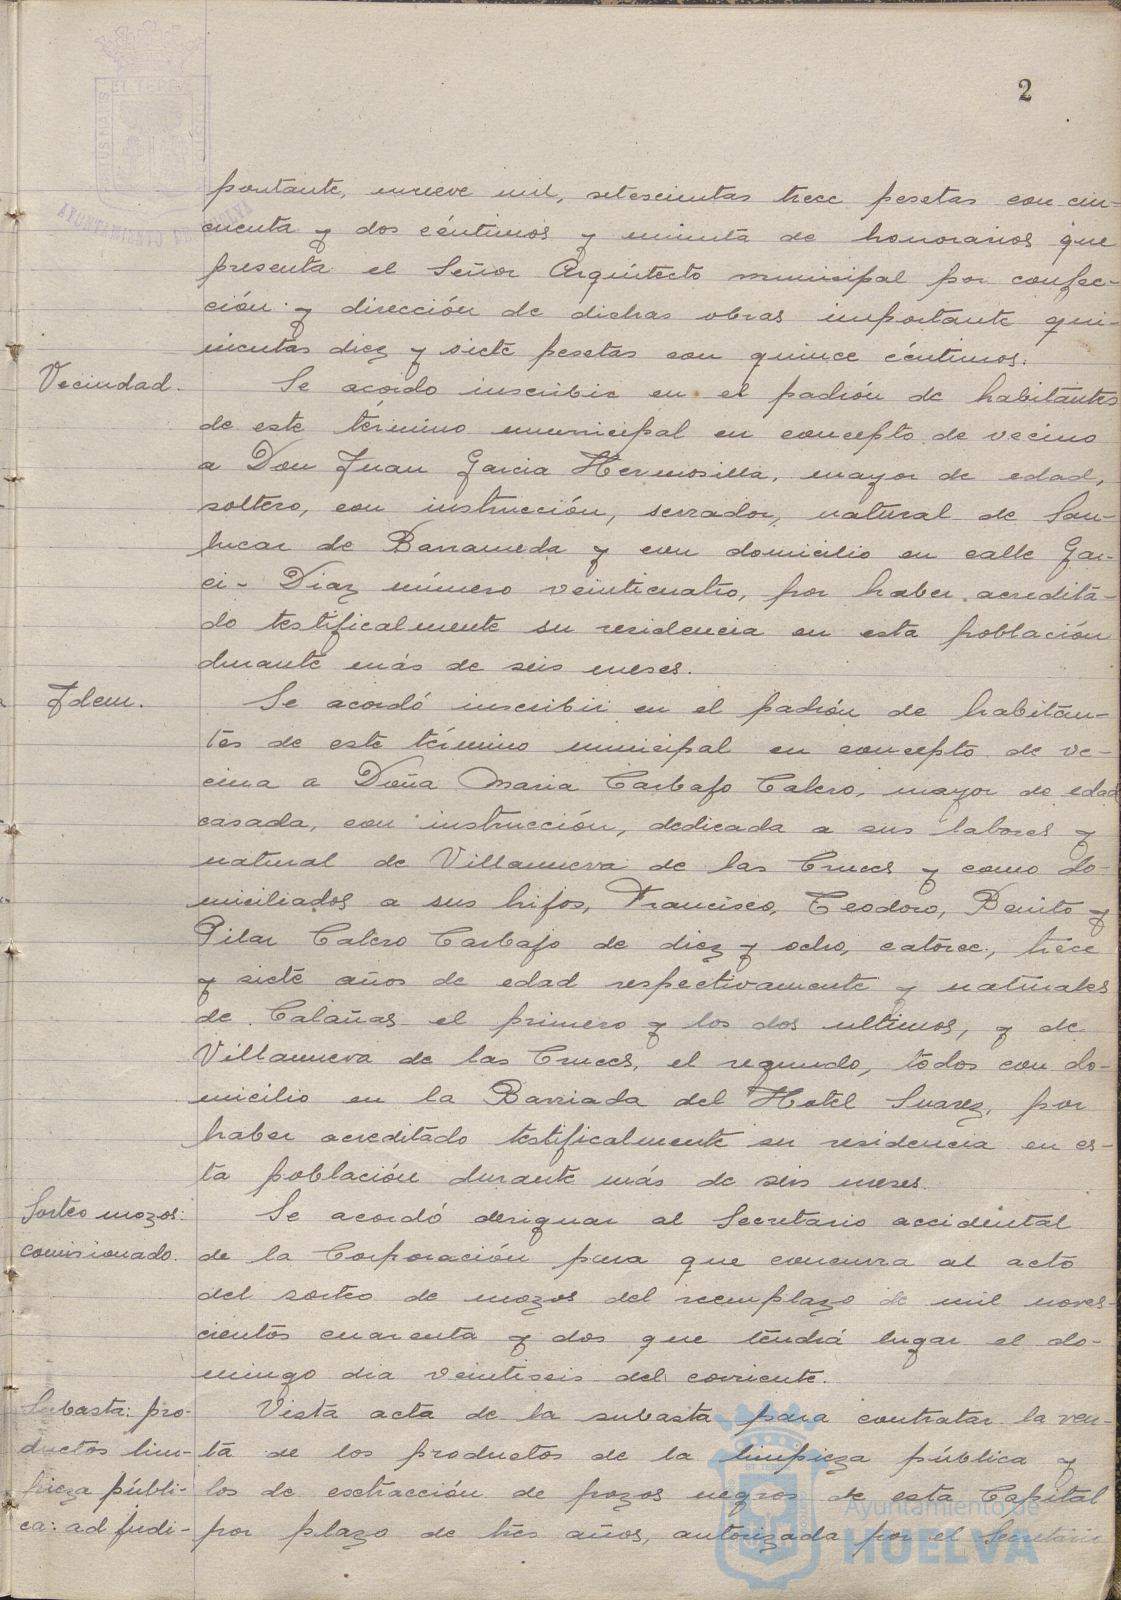 2
portante, nueve mil, setescientas trece pesetas con cin-
cuenta y dos céntimos y minuta de honorarios que
presenta el Señor Arquitecto municipal por confec-
ción y dirección de dichas obras importante qui-
nientas diez y siete pesetas con quince céntimos.
Vecindad.
Se acordo inscribir en el padrón de habitantes
de este término municipal en concepto de vecino
a Don Juan Garcia Hermosilla, mayor de edad,
soltero, con instrucción, serrador, natural de San-
lucar de Barrameda y con domicilio en calle Gar-
ci-Diaz número veinticuatro, por haber acredita-
do testificalmente su residencia en esta población
durante más de seis meses.
Idem.
Se acordó inscribir en el padrón de habitan-
tes de este término municipal en concepto de ve-
cina a Doña Maria Carbajo Calero, mayor de edad
casada, con instrucción, dedicada a sus labores y
natural de Villanueva de las Cruces y como do-
miciliados a sus hijos, Francisco, Teodoro, Benito y
Pilar Calero Carbajo de diez y ocho, catorce, trece
y siete años de edad respectivamente y naturales
de Calañas el primero y los dos ultimos, y de
Villanueva de las Cruces, el segundo, todos con do-
micilio en la Barriada del Hotel Suarez, por
haber acreditado testificalmente su residencia en es-
ta población durante más de seis meses.
Sorteo mozos:
comisionado.
Se acordó designar al Secretario accidental
de la Corporación para que concurra al acto
del sorteo de mozos del reemplazo de mil noves-
cientos cuarenta y dos que tendrá lugar el do-
mingo dia veintiseis del corriente.
Subasta: pro-
ductos lim-
pieza públi-
ca: adjudi-
Vista acta de la subasta para contratar la ven-
ta de los productos de la limpieza pública y
los de extracción de pozos negros de esta Capital
por plazo de tres años, autorizada por el Secretario
AYUNTAMIENTO DE HUELVA
Ayuntamiento de
HUELVA